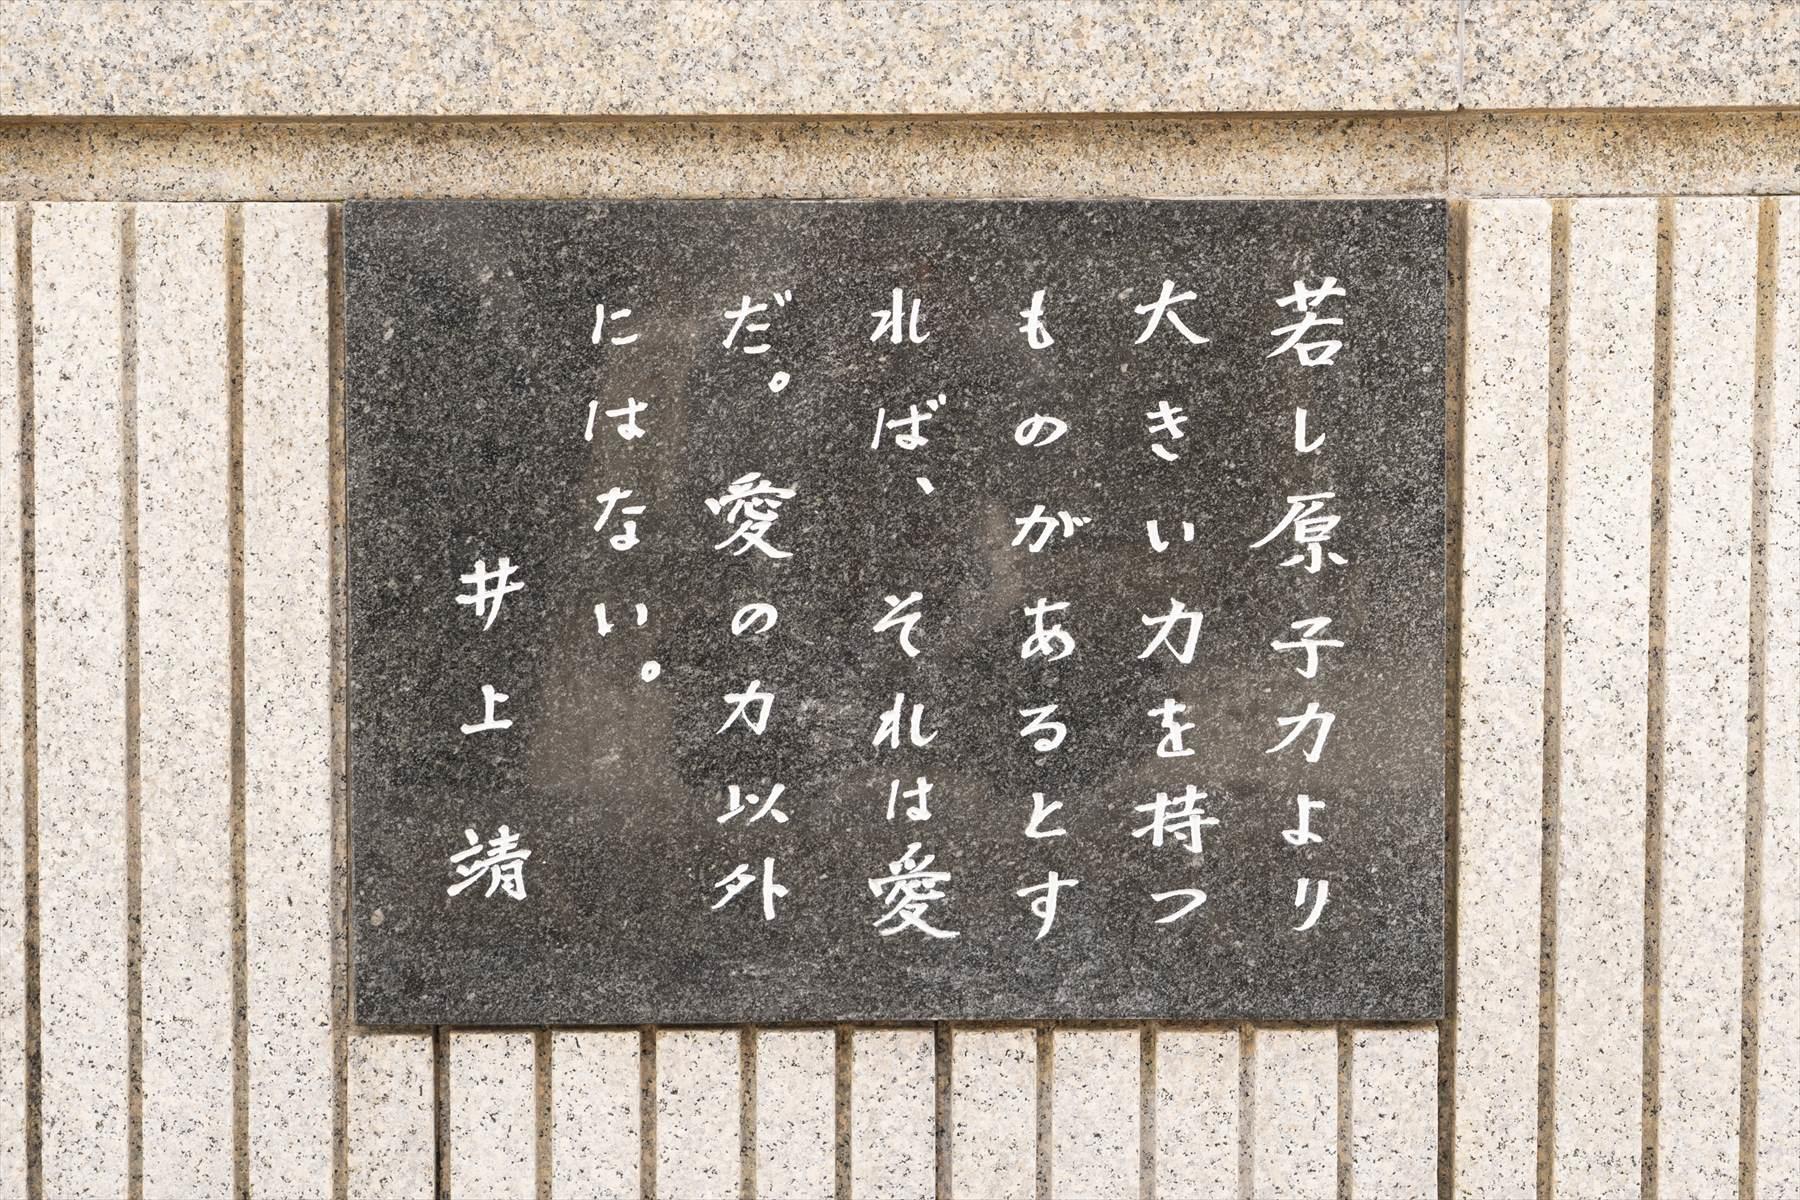 若し原子力より
大きい力を持つ
ものがあるとす
れば、それは愛
だ。愛の力以外
にはない。
井上靖